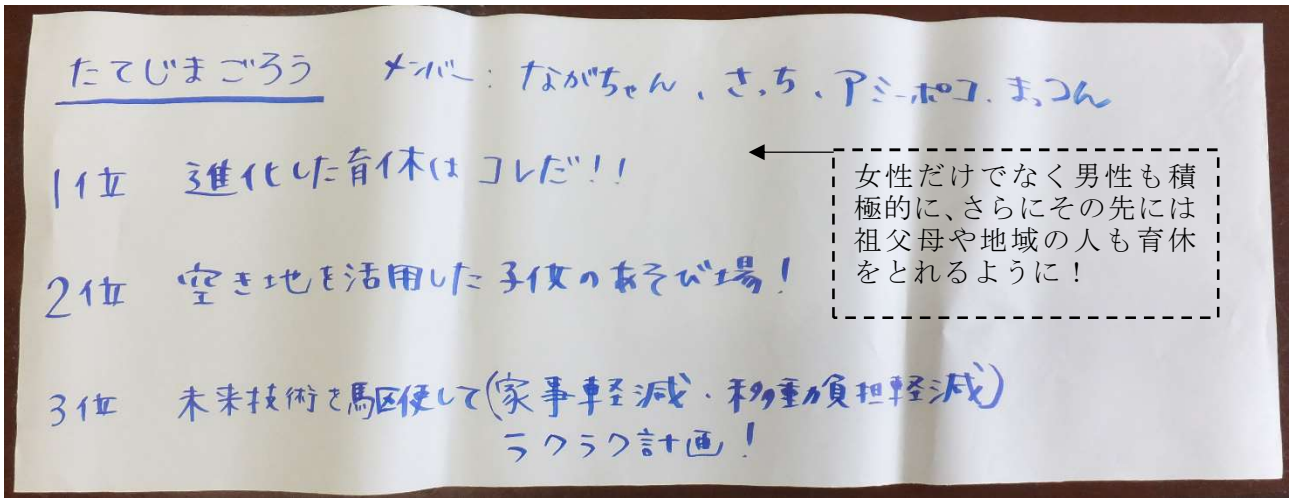 たてじまごろう　メンバー：ながちゃん、さっち、アミーポコ、まっつん
1位　進化した育休はコレだ!!
女性だけでなく男性も積
極的に、さらにその先には
祖父母や地域の人も育休
をとれるように！
2位　空き地を活用した子供のあそび場！
3位　未来技術を駆使して(家事軽減・移動負担軽減)
ラクラク計画！